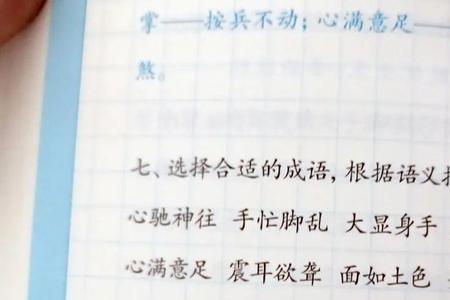 掌——按兵不动；心满意足—
煞。
七、选择合适的成语，根据语义
心驰神往 手忙脚乱 大显身手
心满意足 震耳欲聋 面如土色